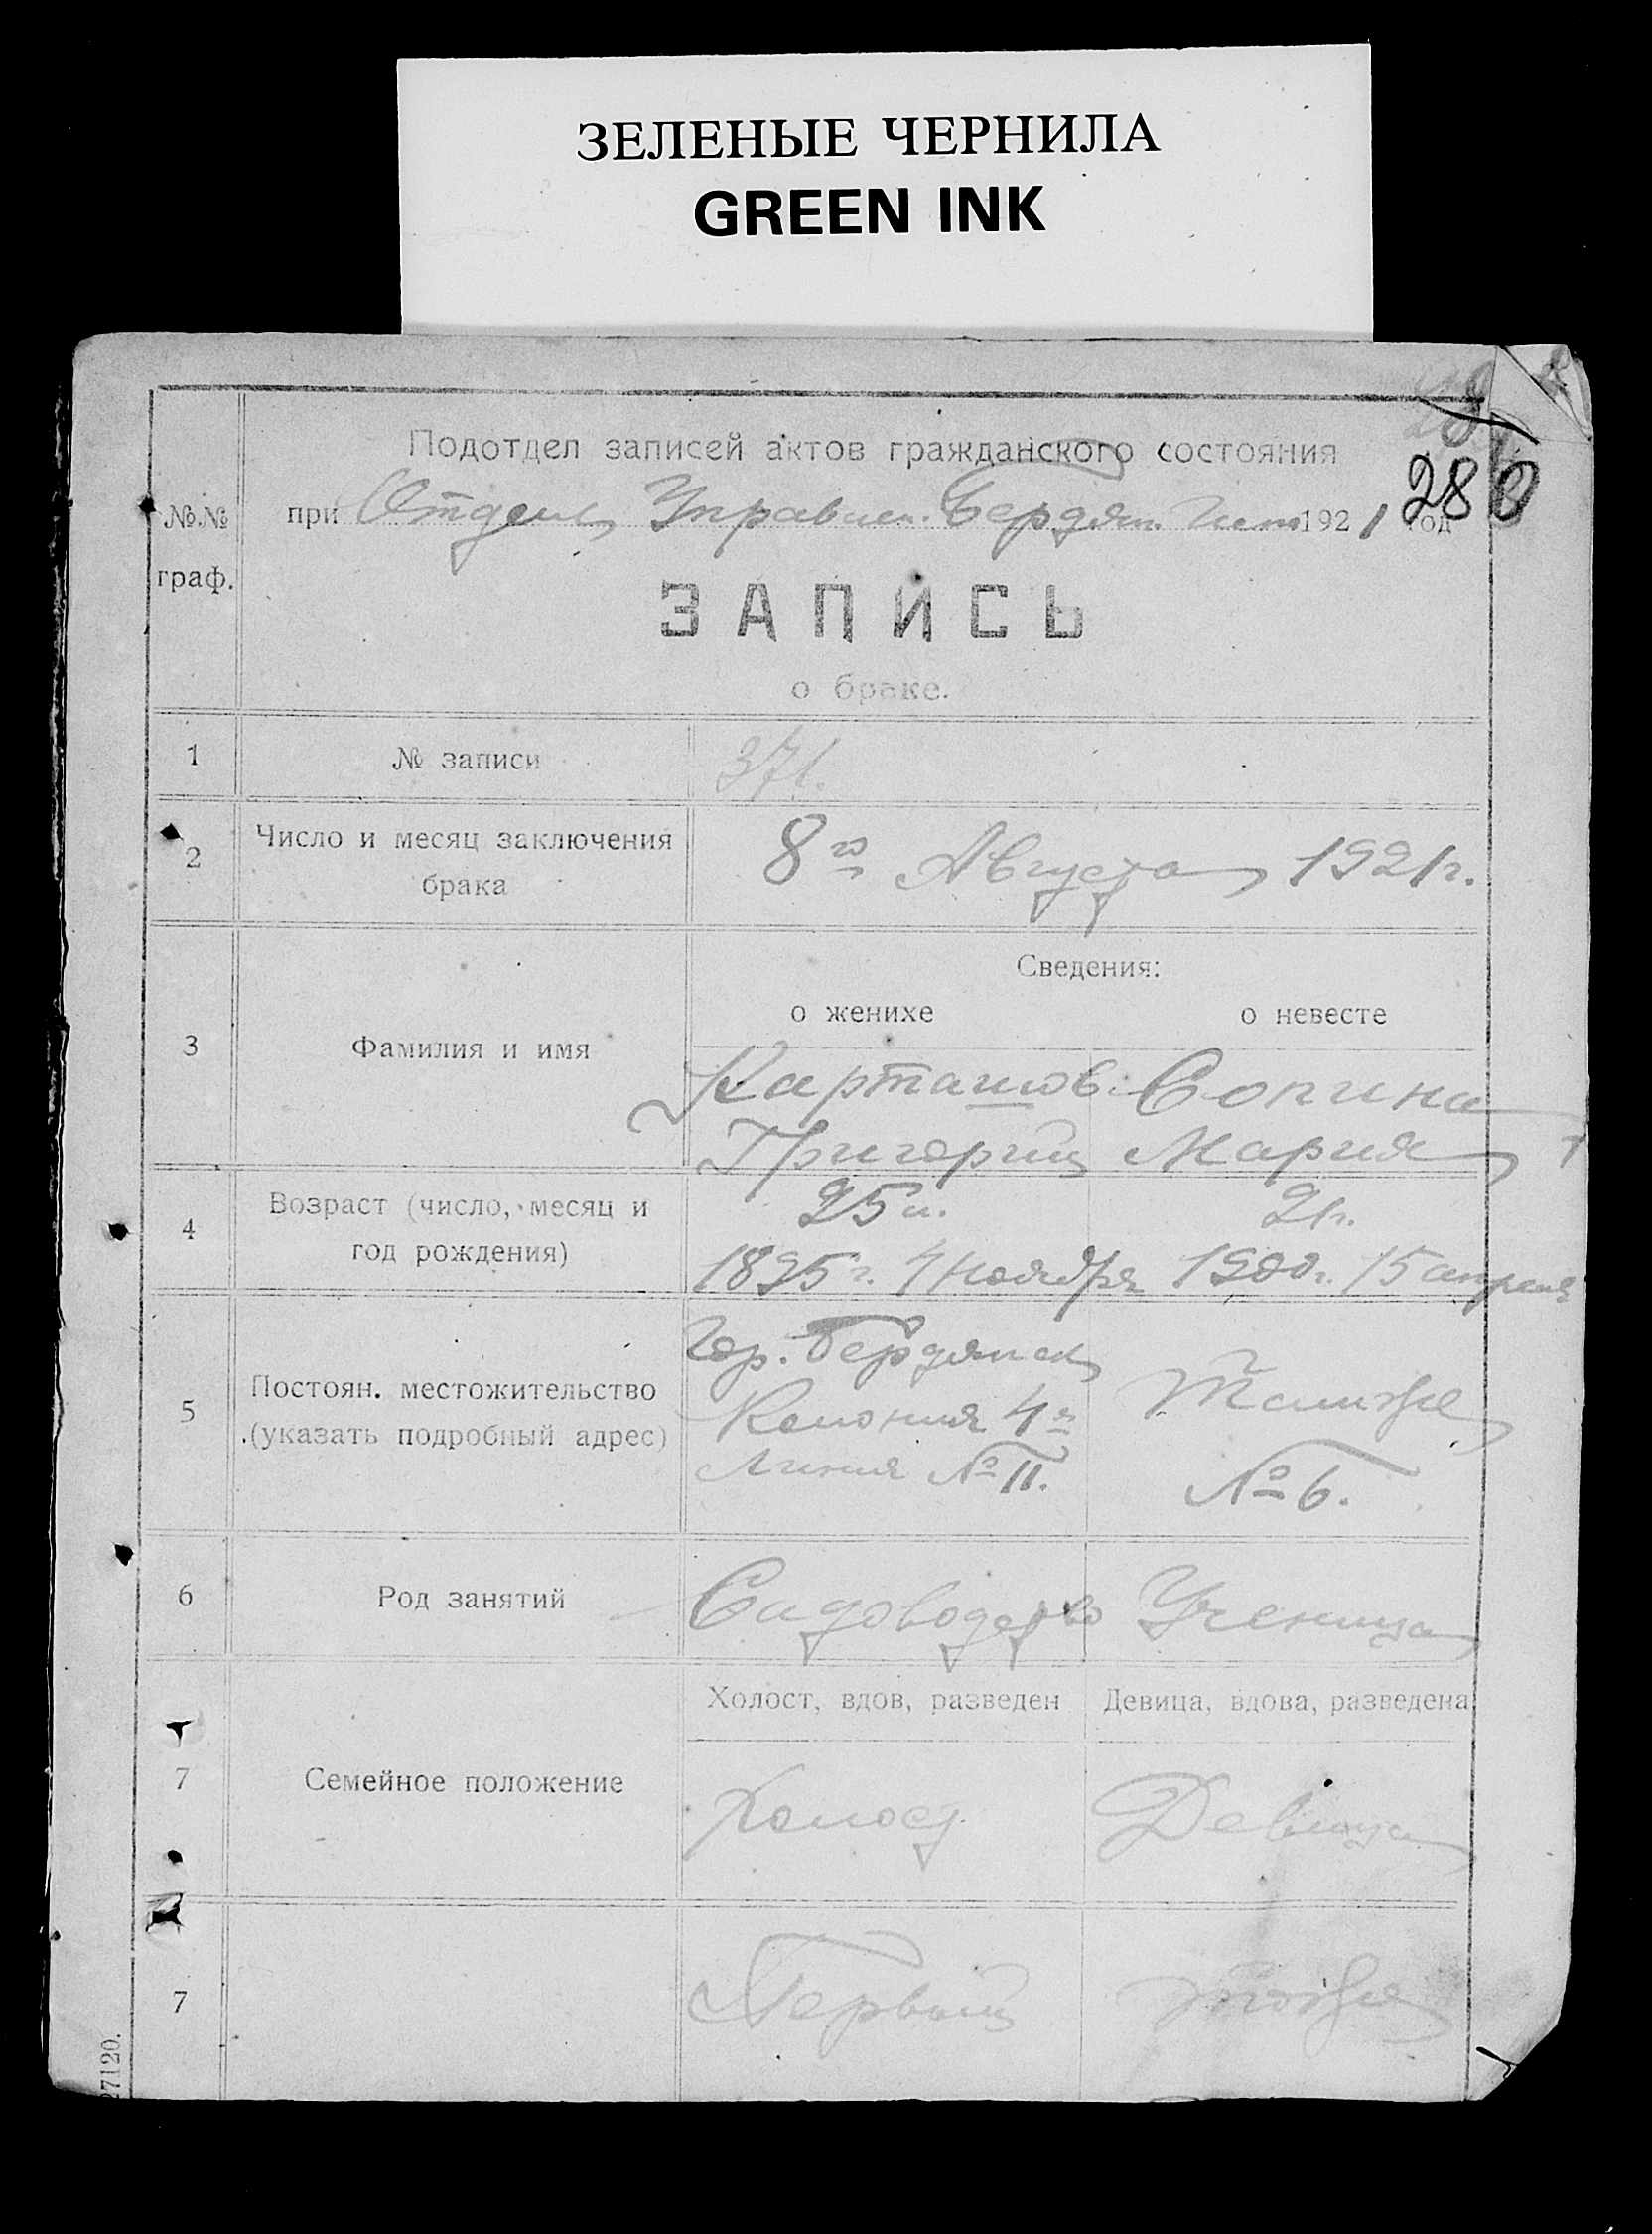 ЗЕЛЕНЫЕ ЧЕРНИЛА
GREEN INK
Подотдел записей актов гражданского состояния
№№ граф.
при Отделе Управлен. Бердян. 1921 год
280
ЗАПИСЬ
о браке.
1 № записи 371.
2 Число и месяц заключения брака
8го Августа 1921г.
Сведения:
о женихе о невесте
3 Фамилия и имя
Карташов Сопина
Григорий Мария
4 Возраст (число, месяц и год рождения)
25 л. 21 г.
1895 г. 4 ноября 1900 г. 15 апреля
5 Постоян. местожительство (указать подробный адрес)
Гор. Бердянск
Колония 4я Там же
Линия № 11. № 6.
6 Род занятий Садоводство Ученица
Холост, вдов, разведен Девица, вдова, разведена
7 Семейное положение Холост Девица
7 Первый тоже
27120.